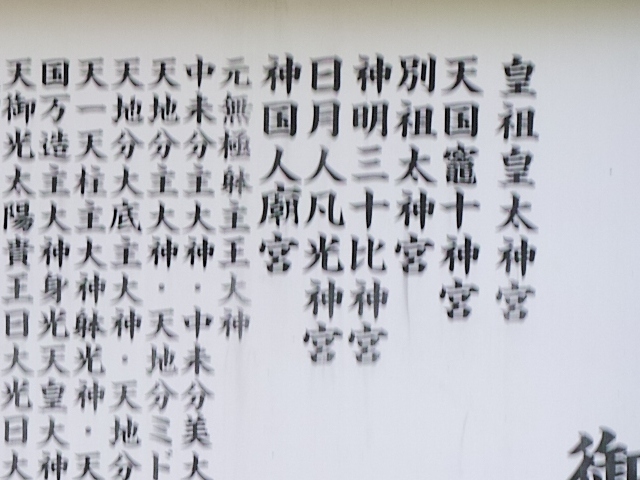 皇祖皇太神宮
天国竈十神宮
別祖太神宮
神明三十比神宮
日月人凡光神宮
神国人廟宮
元無極躰主王大神
中未分主大神・中未分美大
天地分主大神・天地分ミド
天地分大底主大神・天地分
天一天柱主大神躰光神・天
国万造主大神身光天皇大神
天御光太陽貴王日大光日大
御